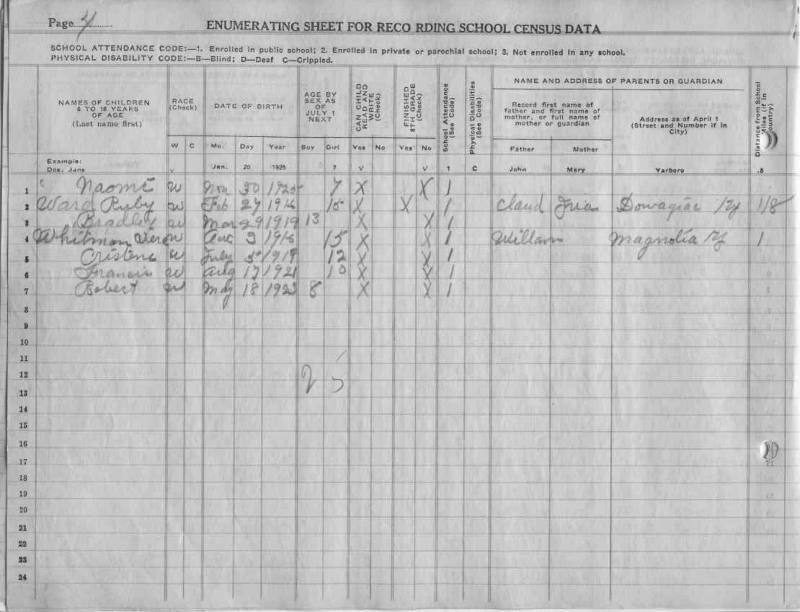 Page 4
ENUMERATING SHEET FOR RECO RDING SCHOOL CENSUS DATA
SCHOOL ATTENDANCE CODE:—1. Enrolled in public school; 2. Enrolled in private or parochial school; 3. Not enrolled in any school.
PHYSICAL DISABILITY CODE:—B—Blind; D—Deaf C—Crippled.
NAMES OF CHILDREN 6 TO 18 YEARS OF AGE (Last name first)
RACE (Check)
DATE OF BIRTH
AGE BY SEX AS OF JULY 1 NEXT
CAN CHILD READ AND WRITE (Check)
FINISHED 8TH GRADE (Check)
School Attendance (See Code)
Physical Disabilities (See Code)
NAME AND ADDRESS OF PARENTS OR GUARDIAN
Record first name of father and first name of mother, or full name of mother or guardian
Address as of April 1 (Street and Number if in City)
Distance from School Miles (if in Country)
W C Mo. Day Year Boy Girl Yes No Yes No Father Mother
Example:
Doe, Jane v Jan. 20 1925 7 v v 1 C John Mary Yarboro .8
1 Naomi W Nov 30 1923 7 X X 1
2 Ward Ruby W Feb 27 1916 15 X X 1 Claud Dowagiac Ky 1/8
3 Bradley W Mar 29 1919 13 X X 1
4 Whitman W Aug 3 1916 15 X X 1 William Magnolia Ky 1
5 Cristene W July 1919 12 X X 1
6 Francis W Aug 17 1921 10 X X 1
7 Robert W May 18 1923 8 X X 1
8
9
10
11
12 2 5
13
14
15
16
17
18
19
20
21
22
23
24